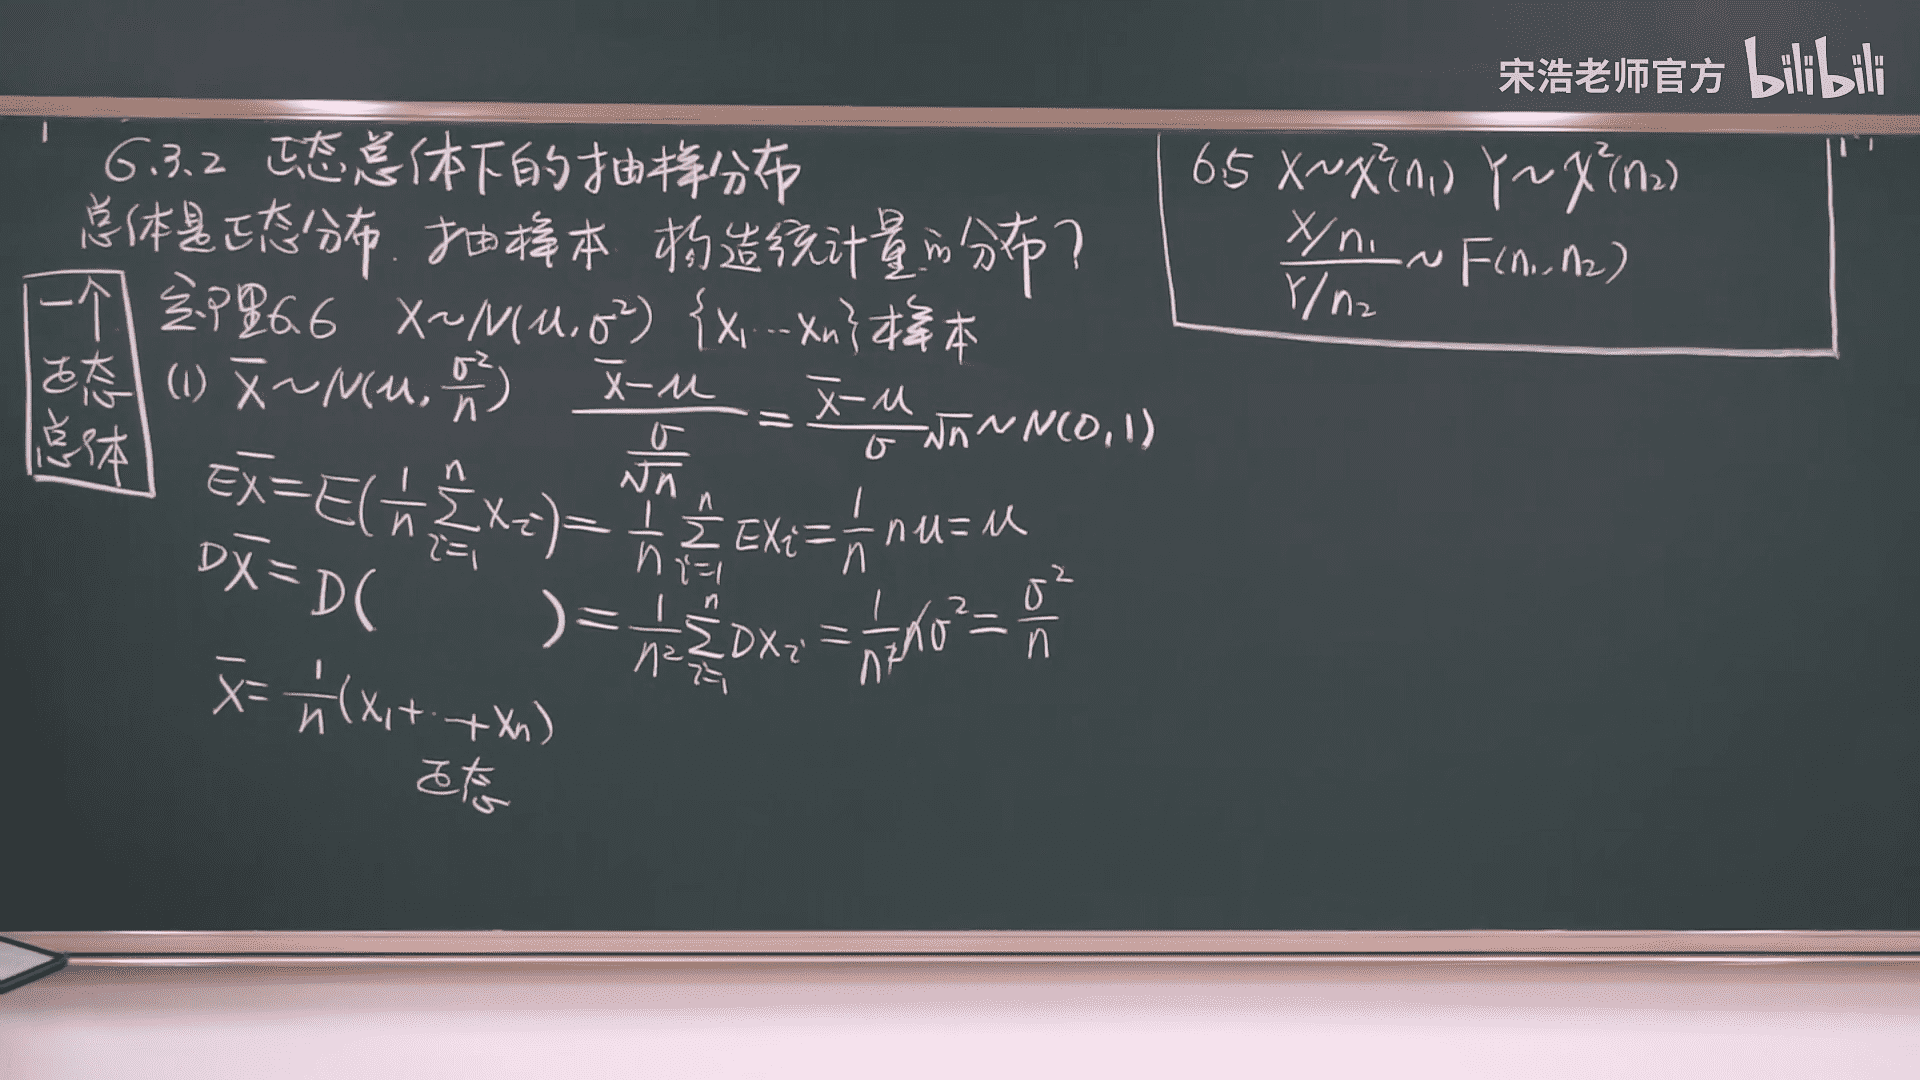 宋浩老师官方 bilibili
6.3.2 正态总体下的抽样分布
总体是正态分布. 抽样本 构造统计量的分布?
一个
正态
总体
定理6.6 X~N(μ,σ²) {x₁…xₙ}样本
(1) x̄~N(μ, σ²/n) (x̄-μ)/(σ/√n) = (x̄-μ)/σ √n ~ N(0,1)
Ex̄ = E(1/n ∑ᵢ₌₁ⁿ xᵢ) = 1/n ∑ᵢ₌₁ⁿ Exᵢ = 1/n nμ = μ
Dx̄ = D( ) = 1/n² ∑ᵢ₌₁ⁿ Dxᵢ = 1/n² nσ² = σ²/n
x̄ = 1/n (x₁+…+xₙ)
正态
6.5 X~χ²(n₁) Y~χ²(n₂)
(X/n₁)/(Y/n₂) ~ F(n₁,n₂)